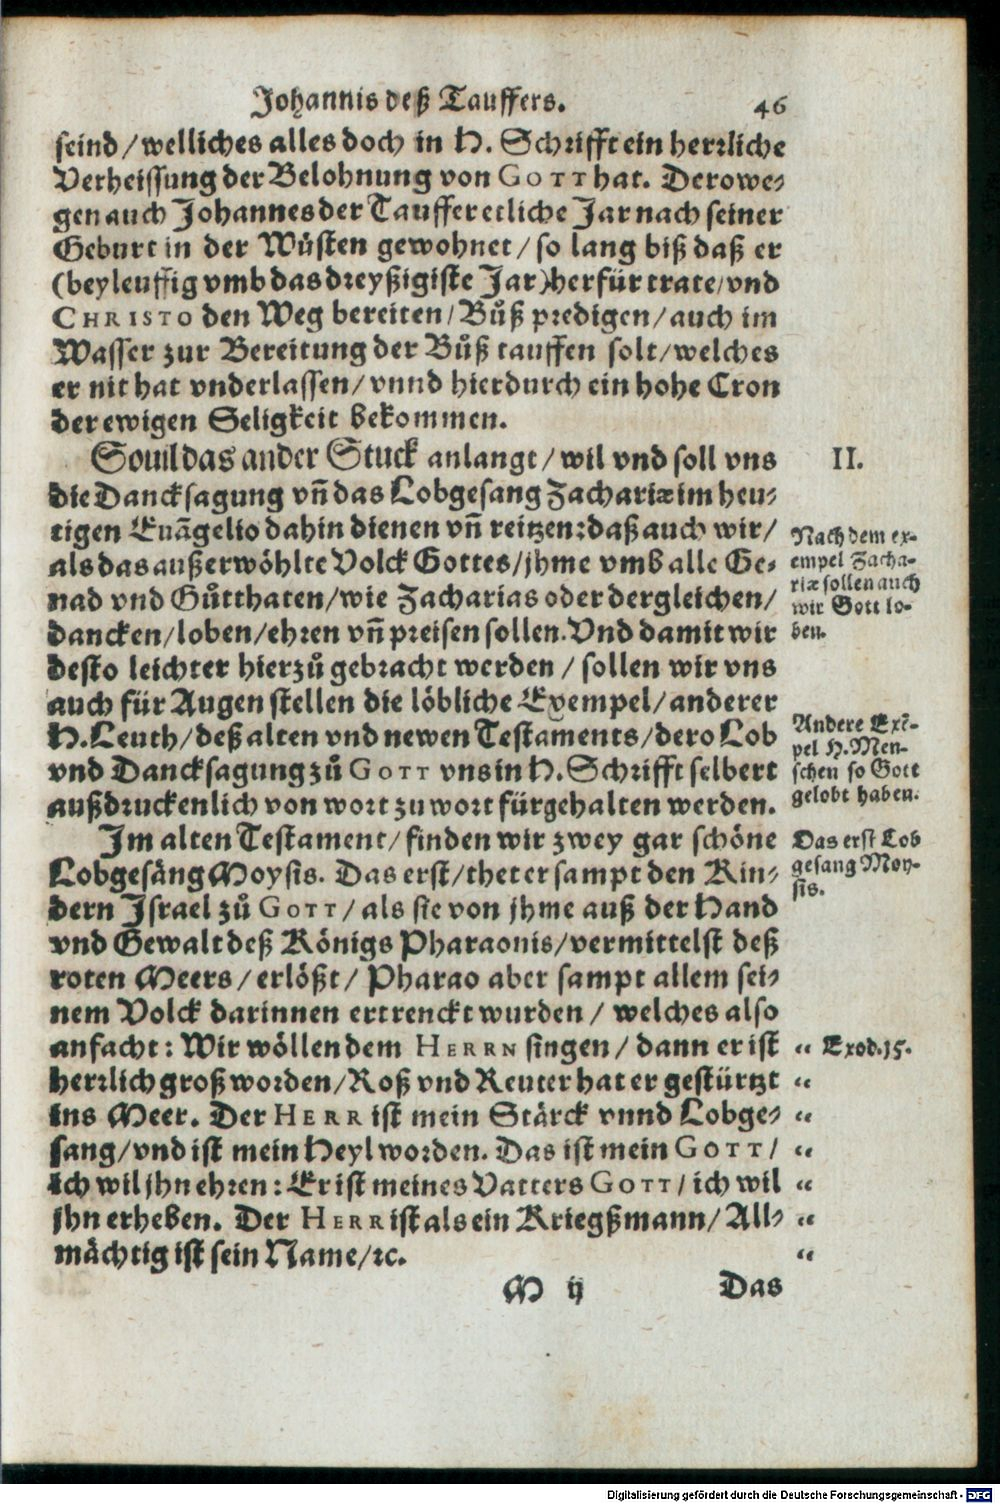 Johannis deß Tauffers. 46
seind/welliches alles doch in H. Schrifft ein herrliche
Verheissung der Belohnung von GOTT hat. Derowe-
gen auch Johannes der Tauffer etliche Jar nach seiner
Geburt in der Wüsten gewohnet/so lang biß daß er
(beyleuffig vmb das dreyßigiste Jar) herfür trate/vnd
CHRISTO den Weg bereiten/Bůß predigen/auch im
Wasser zur Bereitung der Bůß tauffen solt/welches
er nit hat vnderlassen/vnnd hierdurch ein hohe Cron
der ewigen Seligkeit bekommen.
Souil das ander Stuck anlangt/wil vnd soll vns
II.
die Dancksagung vñ das Lobgesang Zachariæ im heu-
tigen Euãgelio dahin dienen vñ reitzen: daß auch wir/
als das außerwöhlte Volck Gottes/jhme vmb alle Ge-
nad vnd Gůtthaten/wie Zacharias oder dergleichen/
dancken/loben/ehren vñ preisen sollen. Vnd damit wir
Nach dem ex-
empel Zacha-
riæ sollen auch
wir Gott lo-
ben.
desto leichter hierzů gebracht werden/sollen wir vns
auch für Augen stellen die löbliche Exempel/anderer
H. Leuth/deß alten vnd newen Testaments/dero Lob
vnd Dancksagung zů GOTT vns in H. Schrifft selbert
außdruckenlich von wort zu wort fürgehalten werden.
Andere Exẽ-
pel H. Men-
schen so Gott
gelobt haben.
Im alten Testament/finden wir zwey gar schöne
Lobgesäng Moysis. Das erst/thet er sampt den Kin-
Das erst Lob
gesang Moy-
sis.
dern Israel zů GOTT/als sie von jhme auß der Hand
vnd Gewalt deß Königs Pharaonis/vermittelst deß
roten Meers/erlößt/Pharao aber sampt allem sei-
nem Volck darinnen ertrenckt wurden/welches also
anfacht: Wir wöllen dem HERRN singen/dann er ist “ Exod. 15.
herrlich groß worden/Roß vnd Reuter hat er gestürtzt “
ins Meer. Der HERR ist mein Stärck vnnd Lobge- “
sang/vnd ist mein Heyl worden. Das ist mein GOTT/ “
ich wil jhn ehren: Er ist meines Vatters GOTT/ich wil “
jhn erheben. Der HERR ist als ein Kriegßmann/All- “
mächtig ist sein Name/ꝛc. “
M ij Das
Digitalisierung gefördert durch die Deutsche Forschungsgemeinschaft - DFG